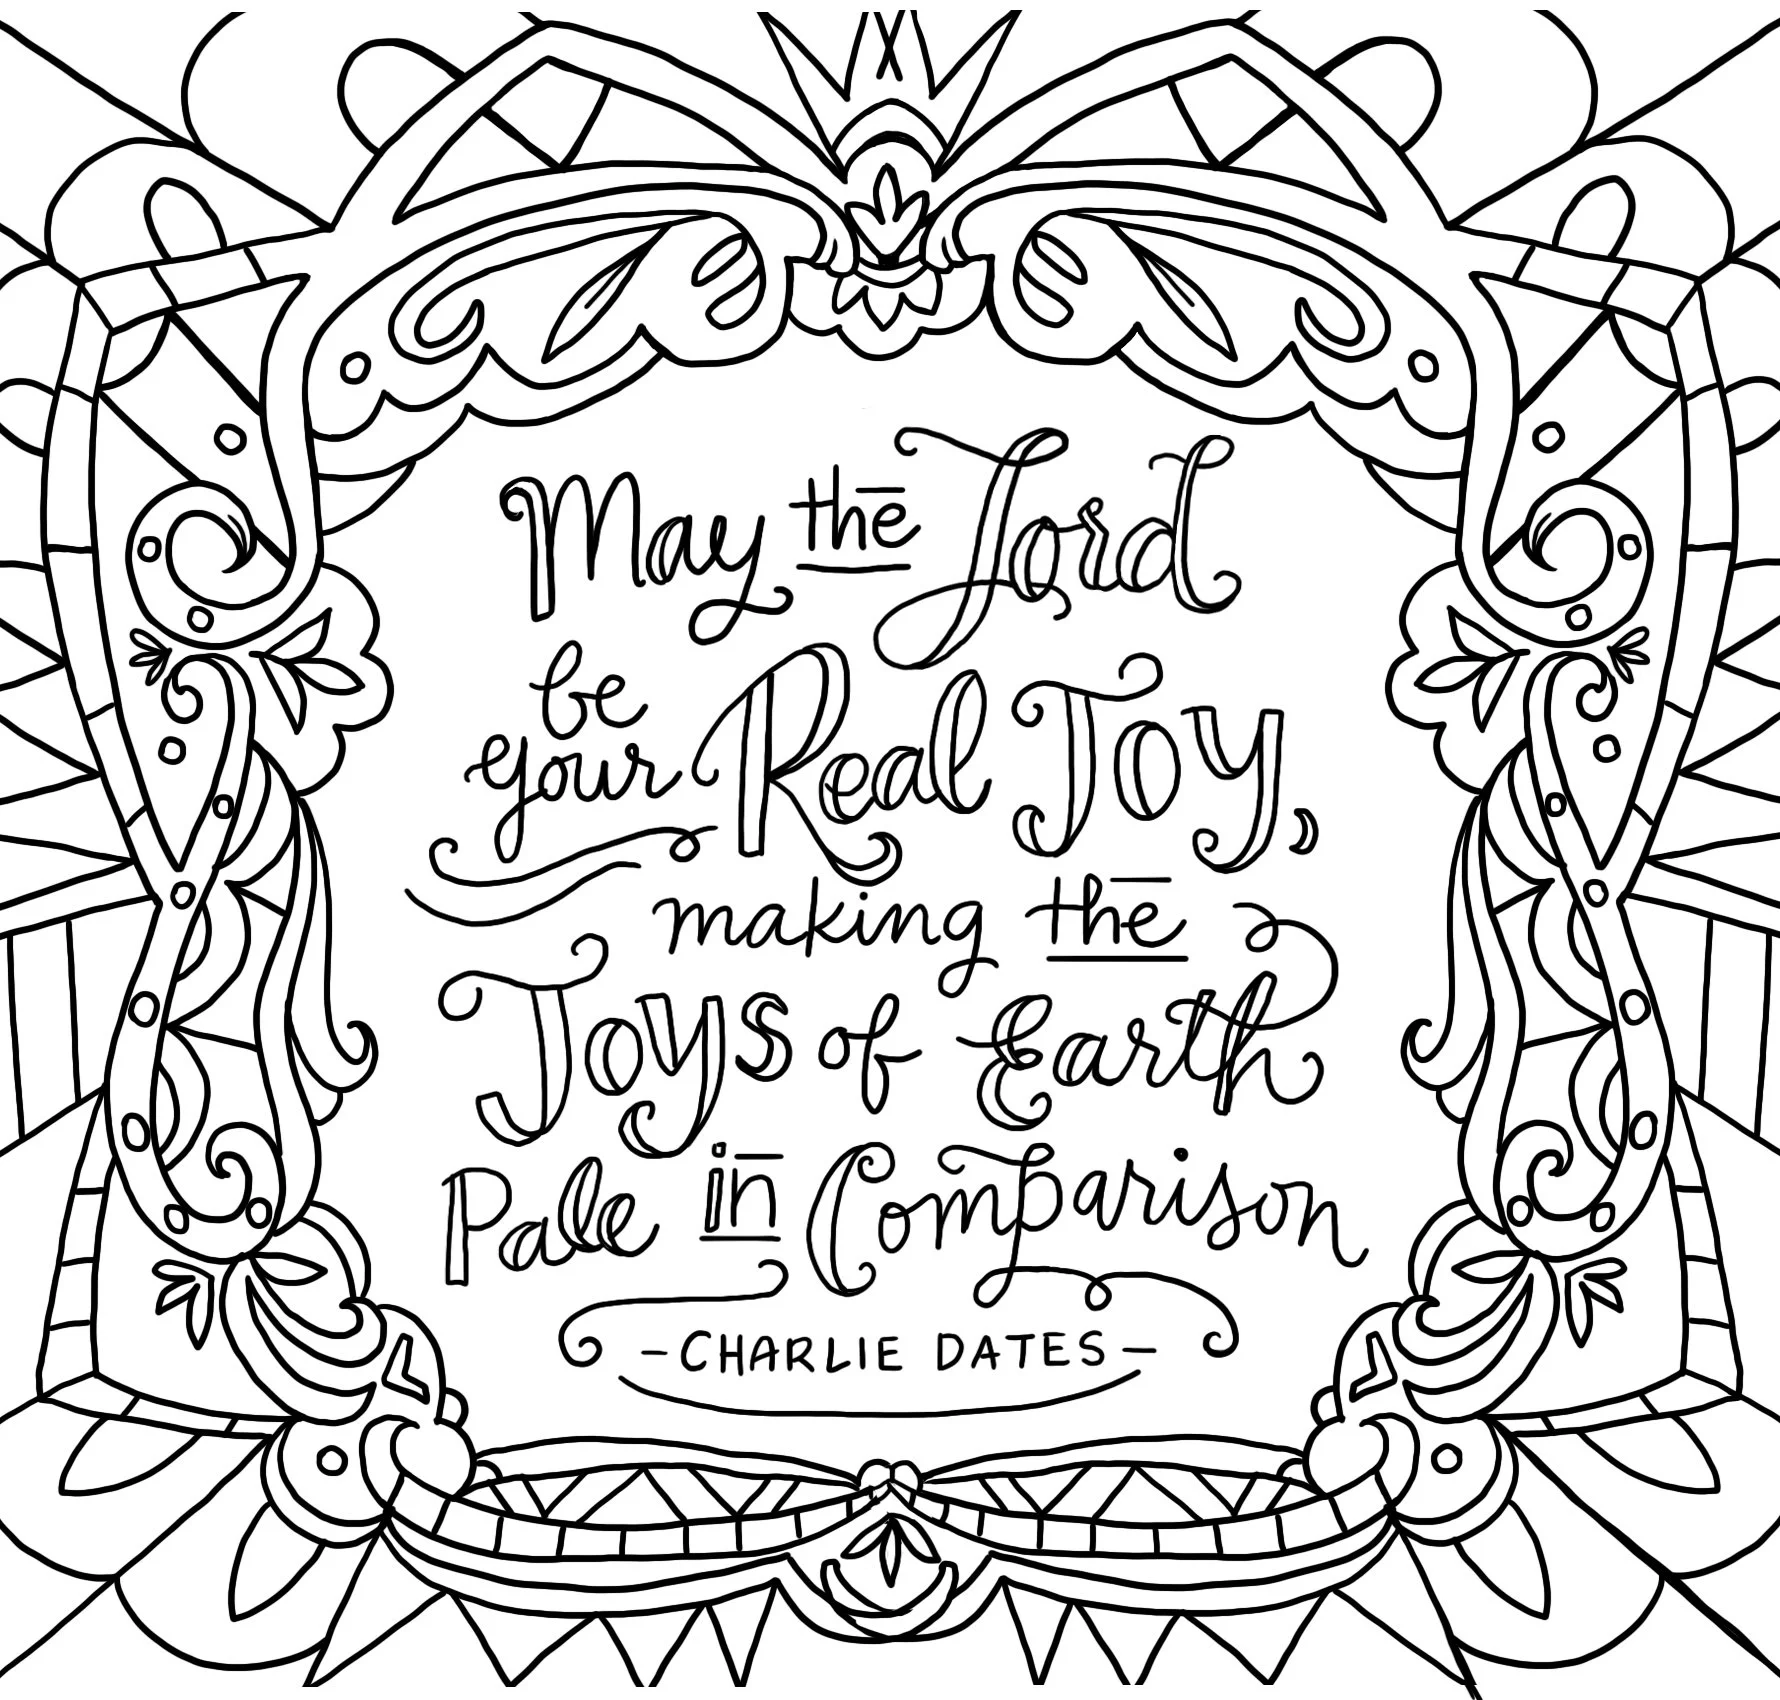 May the Lord
be
your Real Joy,
making the
Joys of Earth
Pale in Comparison
-CHARLIE DATES-